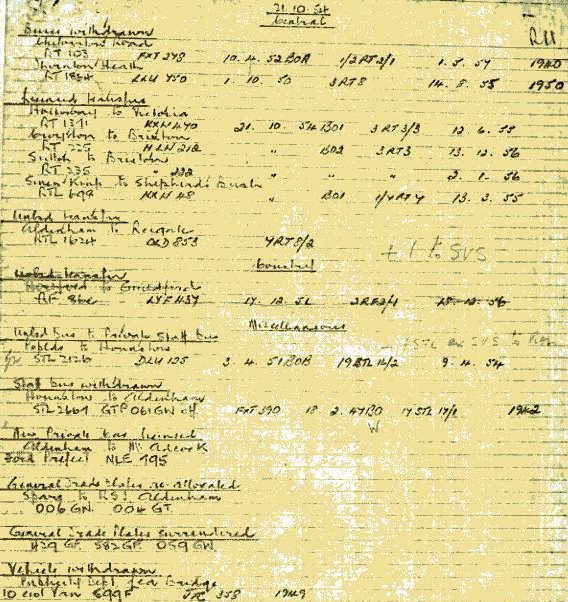 21.10.54
Central
Buses withdrawn
RT 103 FXT 278 10.4.52 BOR 1/2RT2/1 1.5.57 1940
Thornton Heath
RT 1834 LLU 750 1.10.50 3RT8 14.8.55 1950
Licensed transfers
to Victoria
RT 1371 KXX 470 21.10.54 BO1 3RT3/3 12.6.55
Croydon to Brixton
RT 225 HLW 212 " BO2 3RT3 13.12.56
Sutton to Brixton
RT 235 " 222 " " " 2.1.56
to Shepherd's Bush
RTL 698 KXW 48 " BO1 13.3.55
Unlicd transfer
Aldenham to Reigate
RTL 1624 OLD 853 7RT8/2
+ 1 to SVS
Country
Unlicd transfer
Hertford to Guildford
RF LYF 437 17.12.56 2RF2/1
Miscellaneous
Unlicd bus to Private Staff bus
to Hounslow
STL 2126 DLU 125 3.4.51 BOB 19STL16/2 9.4.54
Staff bus withdrawn
Hounslow to Aldenham
STL 2669 GTP 061GW off FXT 390 18.2.47 BO 17STL17/1 1942
W
New Private Car Licensed
Aldenham to Mr Adcock
Ford Prefect NLE 795
General Trade Plates re-allocated
Spare to Aldenham
006 GN. 004 GT.
General Trade Plates surrendered
429 GF. 582 GP. 059 GW
Vehicle withdrawn
Publicity Dept. Lea Bridge
10 cwt Van 699F 358 1949